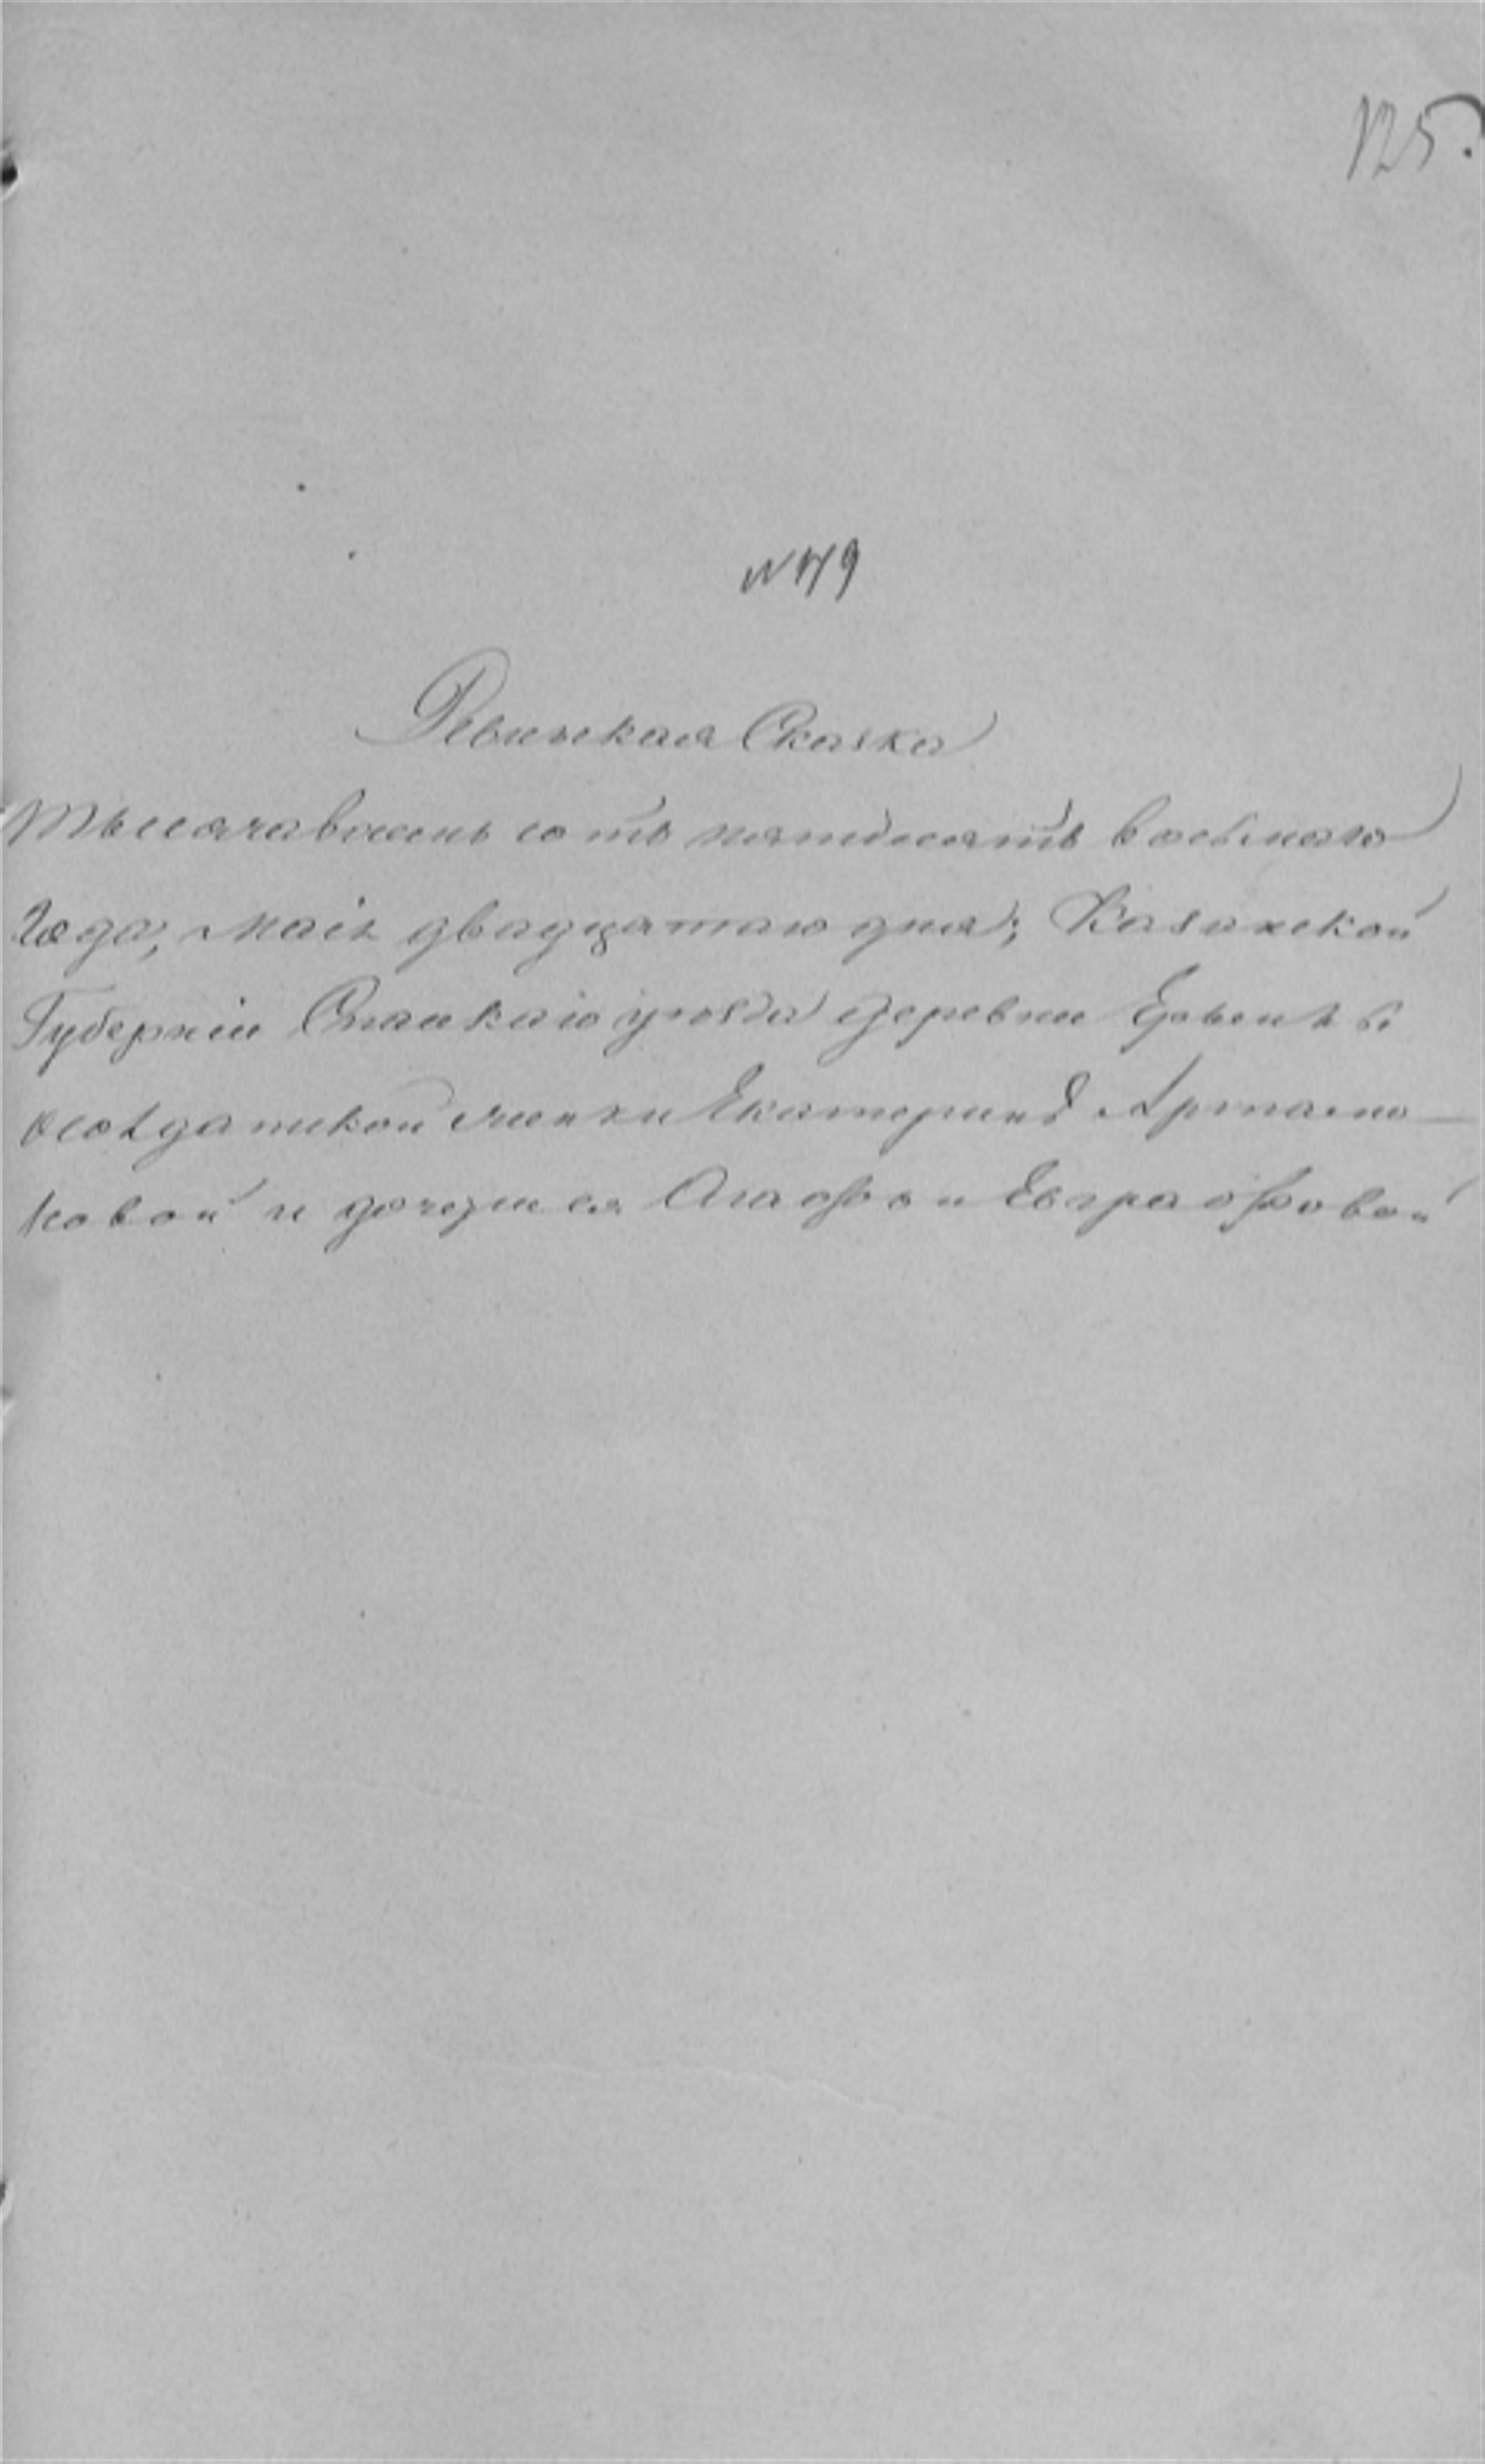 125.
№ 179
Ревизская Сказка
Тысяча восемь сотъ пятидесятъ восьмаго
Года, Маія двадцатаго дня; Казанской
Губерніи Спаскаго уѣзда деревни
солдатской женки Екатерины Артамо-
новой и дочери ея Агафьи Евграфовой